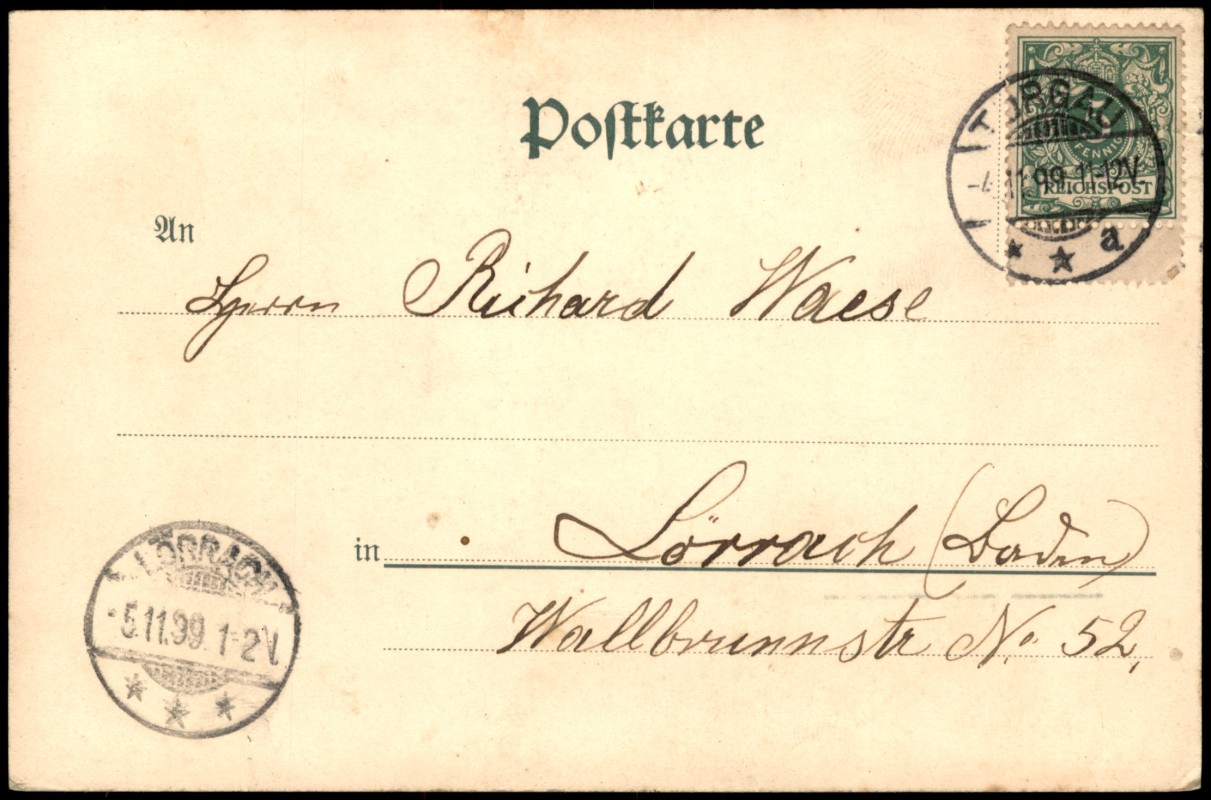 Postkarte
5
PFENNIG
REICHSPOST
TORGAU
-4.11.99. 11-12V.
a
An
Herrn Richard Waese
in Lörrach (Baden)
Wallbrunnstr No. 52.
LÖRRACH.
-5.11.99. 1-2V.